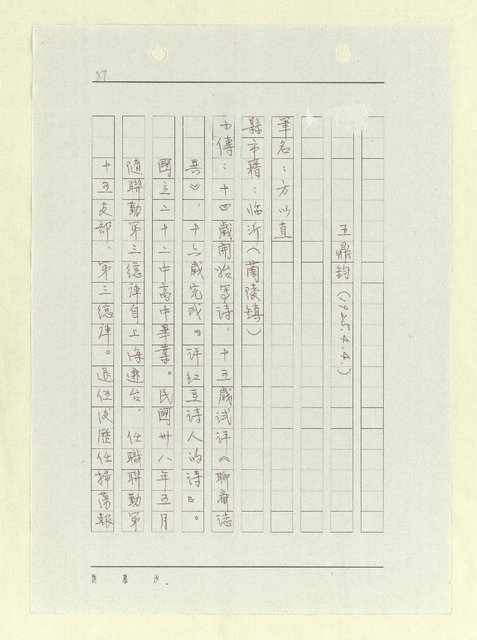 87
王鼎鈞(1925.4.4.)
筆名:方以直
縣市籍:臨沂(蘭陵鎮)
小傳:十四歲開始寫詩,十五歲試評《聊齋誌
異》,十六歲完成『評紅豆詩人的詩』。
國立二十二中高中畢業。民國卅八年五月
隨聯勤第三總庫自上海遷台,任職聯勤第
十五支部、第三總庫。退伍後歷任掃蕩報